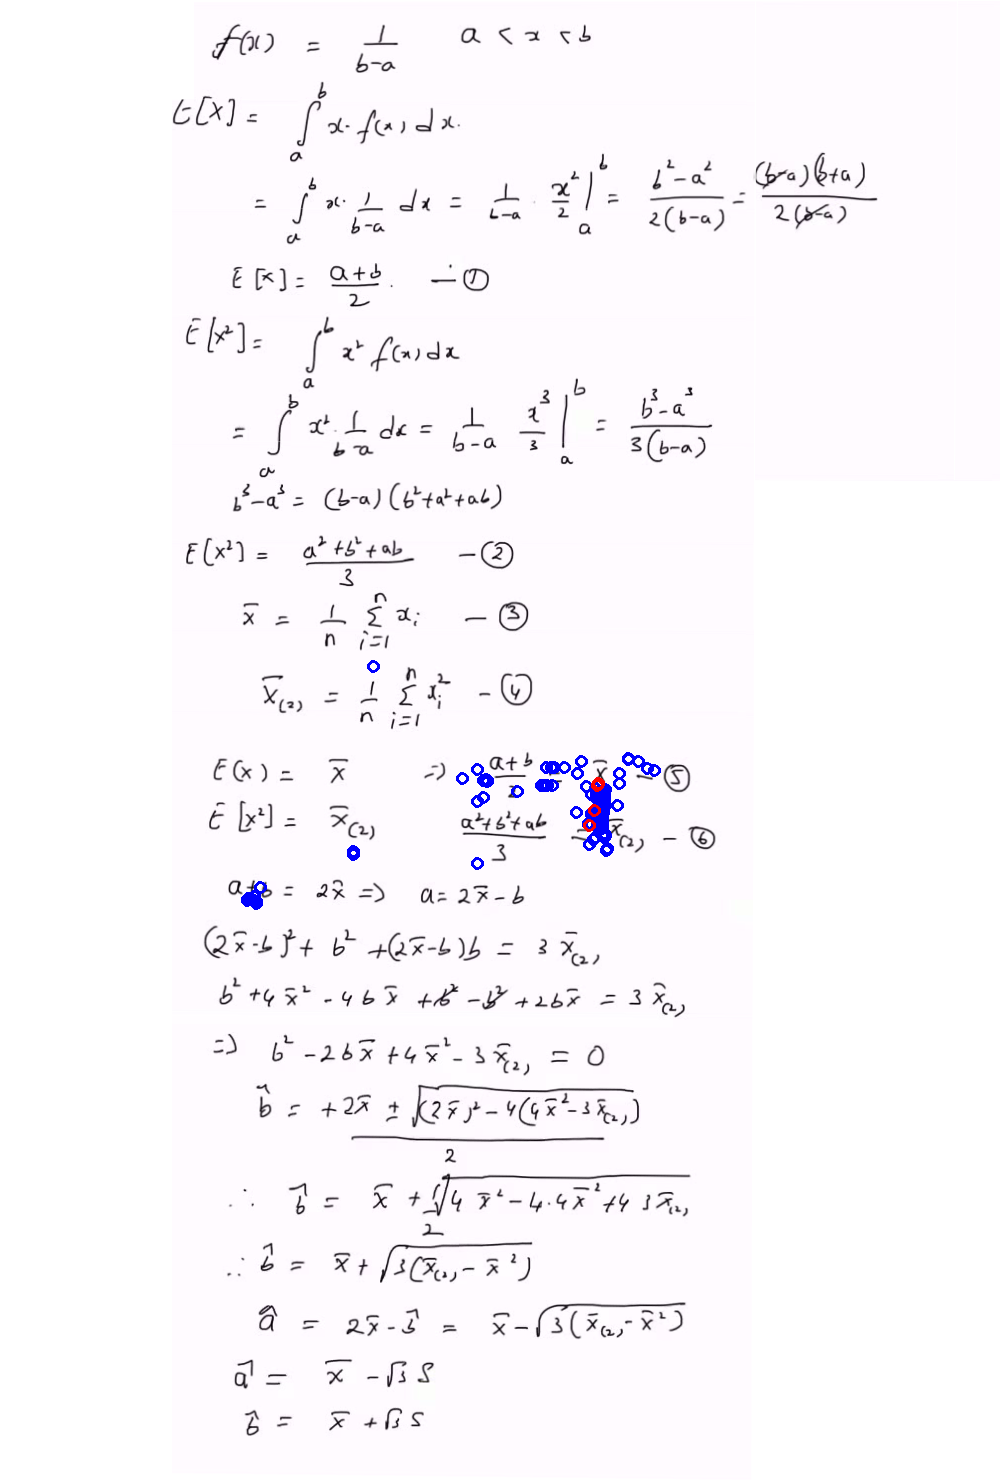 f(x) = 1/(b-a)   a < x < b
E[X] = ∫_a^b x· f(x) dx.
= ∫_a^b x· 1/(b-a) dx = 1/(b-a) · x²/2 |_a^b = (b²-a²)/(2(b-a)) = ((b-a)(b+a))/(2(b-a))
E[x] = (a+b)/2. — ①
E[x²] = ∫_a^b x² f(x) dx
= ∫_a^b x²· 1/(b-a) dx = 1/(b-a) x³/3 |_a^b = (b³-a³)/(3(b-a))
b³-a³ = (b-a)(b²+a²+ab)
E[x²] = (a²+b²+ab)/3 — ②
x̄ = 1/n Σ_{i=1}^n x_i — ③
X̄_(2) = 1/n Σ_{i=1}^n x_i² — ④
E(x) = x̄ ⇒ (a+b)/2 = x̄ — ⑤
E[x²] = x̄_(2)   (a²+b²+ab)/3 = x̄_(2) — ⑥
a+b = 2x̄ ⇒ a = 2x̄-b
(2x̄-b)² + b² + (2x̄-b)b = 3 x̄_(2)
b² + 4x̄² - 4bx̄ + b² - b² + 2bx̄ = 3 x̄_(2)
⇒ b² - 2bx̄ + 4x̄² - 3x̄_(2) = 0
b̂ = (+2x̄ ± √((2x̄)² - 4(4x̄² - 3x̄_(2))))/2
∴ b̂ = x̄ + √(4x̄² - 4·4x̄² + 4 3x̄_(2))/2
∴ b̂ = x̄ + √(3(x̄_(2) - x̄²))
â = 2x̄ - b̂ = x̄ - √(3(x̄_(2) - x̄²))
â = x̄ - √3 S
b̂ = x̄ + √3 S